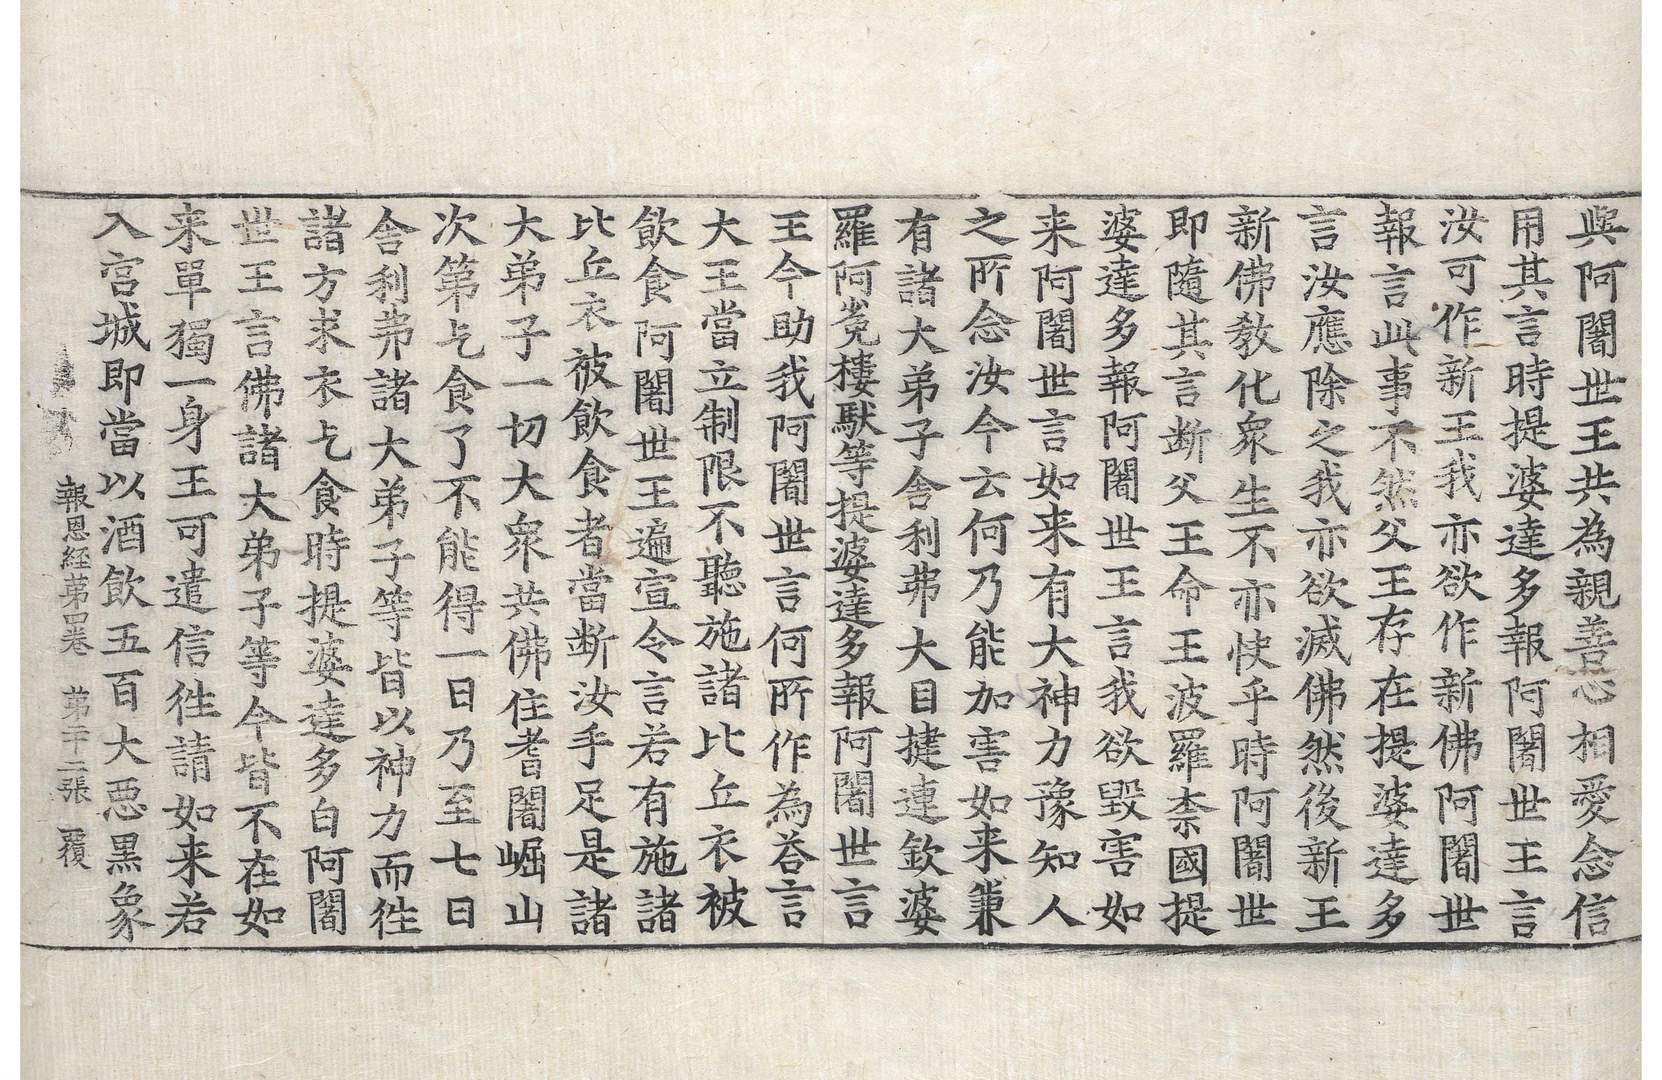 與阿闍世王共為親善心相愛念信
用其言時提婆達多報阿闍世王言
汝可作新王我亦欲作新佛阿闍世
報言此事不然父王存在提婆達多
言汝應除之我亦欲滅佛然後新王
新佛教化衆生不亦快乎時阿闍世
即隨其言断父王命王波羅柰國提
婆達多報阿闍世王言我欲毀害如
来阿闍世言如来有大神力豫知人
之所念汝今云何乃能加害如来兼
有諸大弟子舍利弗大目揵連欽婆
羅阿㝹樓馱等提婆達多報阿闍世言
王今助我阿闍世言何所作為荅言
大王當立制限不聽施諸比丘衣被
飲食阿闍世王遍宣令言若有施諸
比丘衣被飲食者當断汝手足是諸
大弟子一切大衆共佛住耆闍崛山
次第乞食了不能得一日乃至七日
舍利弗諸大弟子等皆以神力而徃
諸方求衣乞食時提婆達多白阿闍
世王言佛諸大弟子等今皆不在如
来單獨一身王可遣信徃請如来若
入宮城即當以酒飲五百大惡黒象
報恩經苐四卷 苐十二張 覆